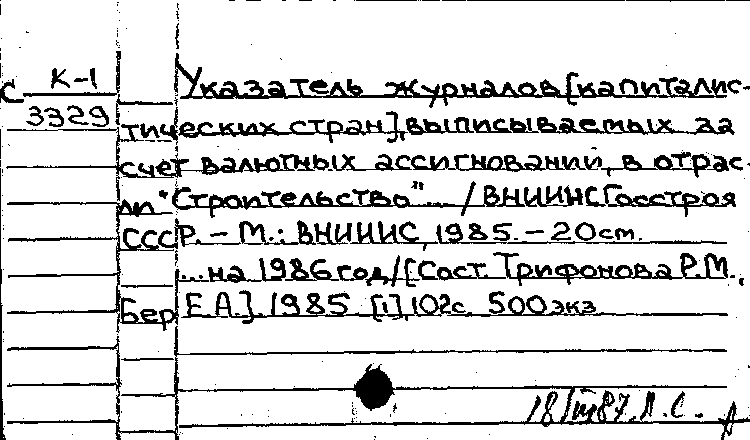 С К-1
3329
Указатель журналов [капиталис-
тических стран], выписываемых за
счет валютных ассигнований, в отрас-
ли "Строительство"... / ВНИИИС Госстроя
СССР. - М.: ВНИИИС, 1985. - 20 cm.
...на 1986 год / [Сост. Трифонова Р.М.,
Бер Е.А.]. 1985. [1], 102 с. 500 экз.
18/III 87. Л. С.